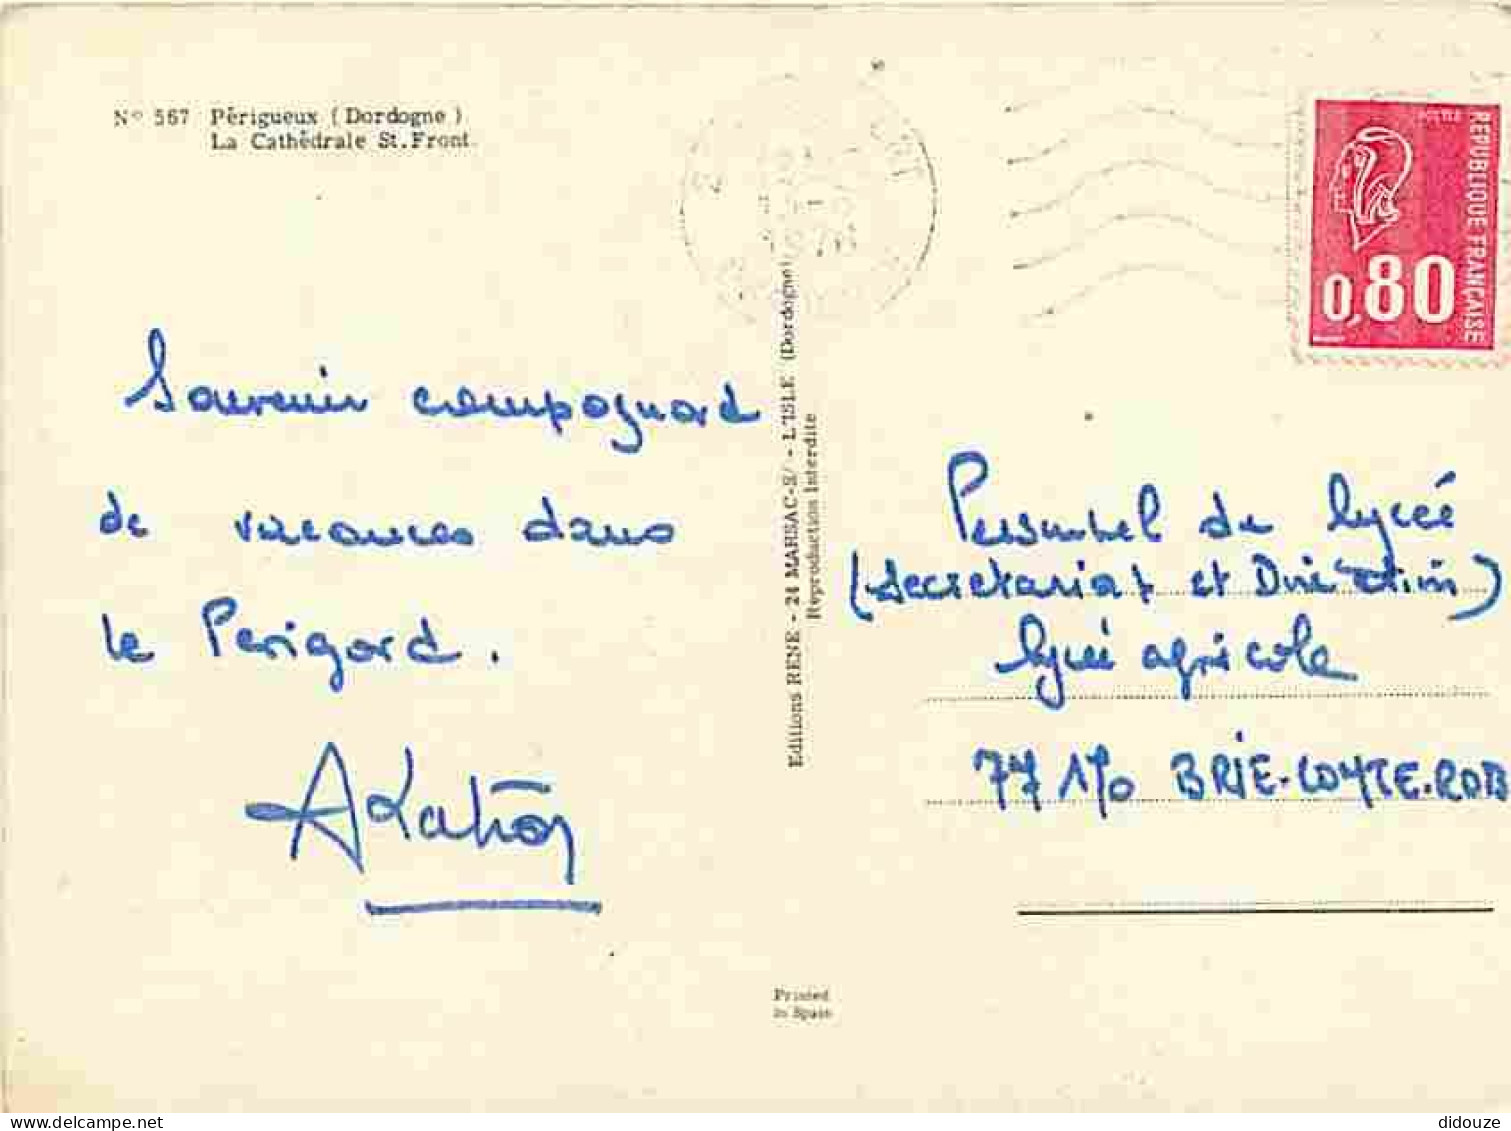 Nº 567 Périgueux (Dordogne)
La Cathédrale St. Front
Souvenir campagnard
de vacances dans
le Perigord.
Editions RENE - 24 MARSAC-S/ - L'ISLE (Dordogne)
Reproduction Interdite
REPUBLIQUE FRANÇAISE
0,80
Personnel du lycée
(Secretariat et Direction)
lycée agricole
77170 BRIE-COMTE-ROB
Printed
in Spain
didouze